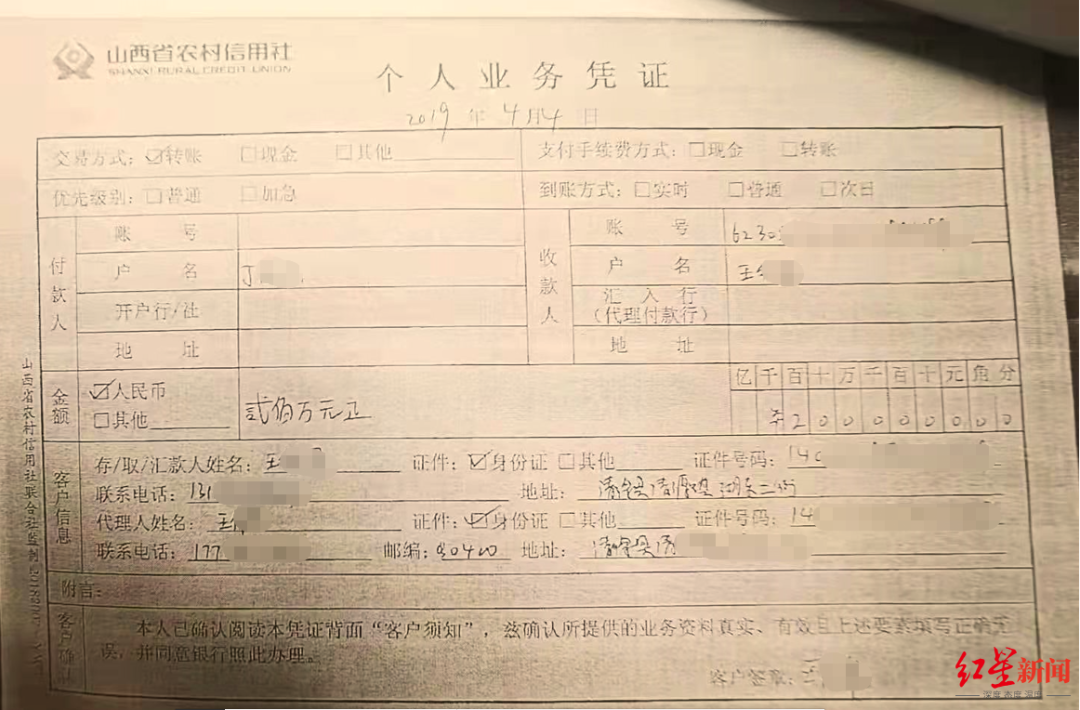 山西省农村信用社
SHANXI RURAL CREDIT UNION
个人业务凭证
2019 年 4月4 日
交易方式：☑转账 □现金 □其他 支付手续费方式：□现金 □转账
优先级别：□普通 □加急 到账方式：□实时 □普通 □次日
付款人 账号 收款人 账号 6230
户名 丁 户名 王
开户行/社 汇入行（代理付款行）
地址 地址
金额 ☑人民币 □其他 贰佰万元正 亿千百十万千百十元角分
2 0 0 0 0 0 0 0 0
客户信息
存/取/汇款人姓名：王 证件：☑身份证 □其他 证件号码：140
联系电话：131 地址：清徐县清源镇湖东二街
代理人姓名：王 证件：☑身份证 □其他 证件号码：14
联系电话：177 邮编：030400 地址：清徐县清
附言：
客户确认
本人已确认阅读本凭证背面“客户须知”，兹确认所提供的业务资料真实、有效且上述要素填写正确无
误，并同意银行照此办理。
客户签章：王
山西省农村信用社联合社监制
红星新闻
深度 态度 温度